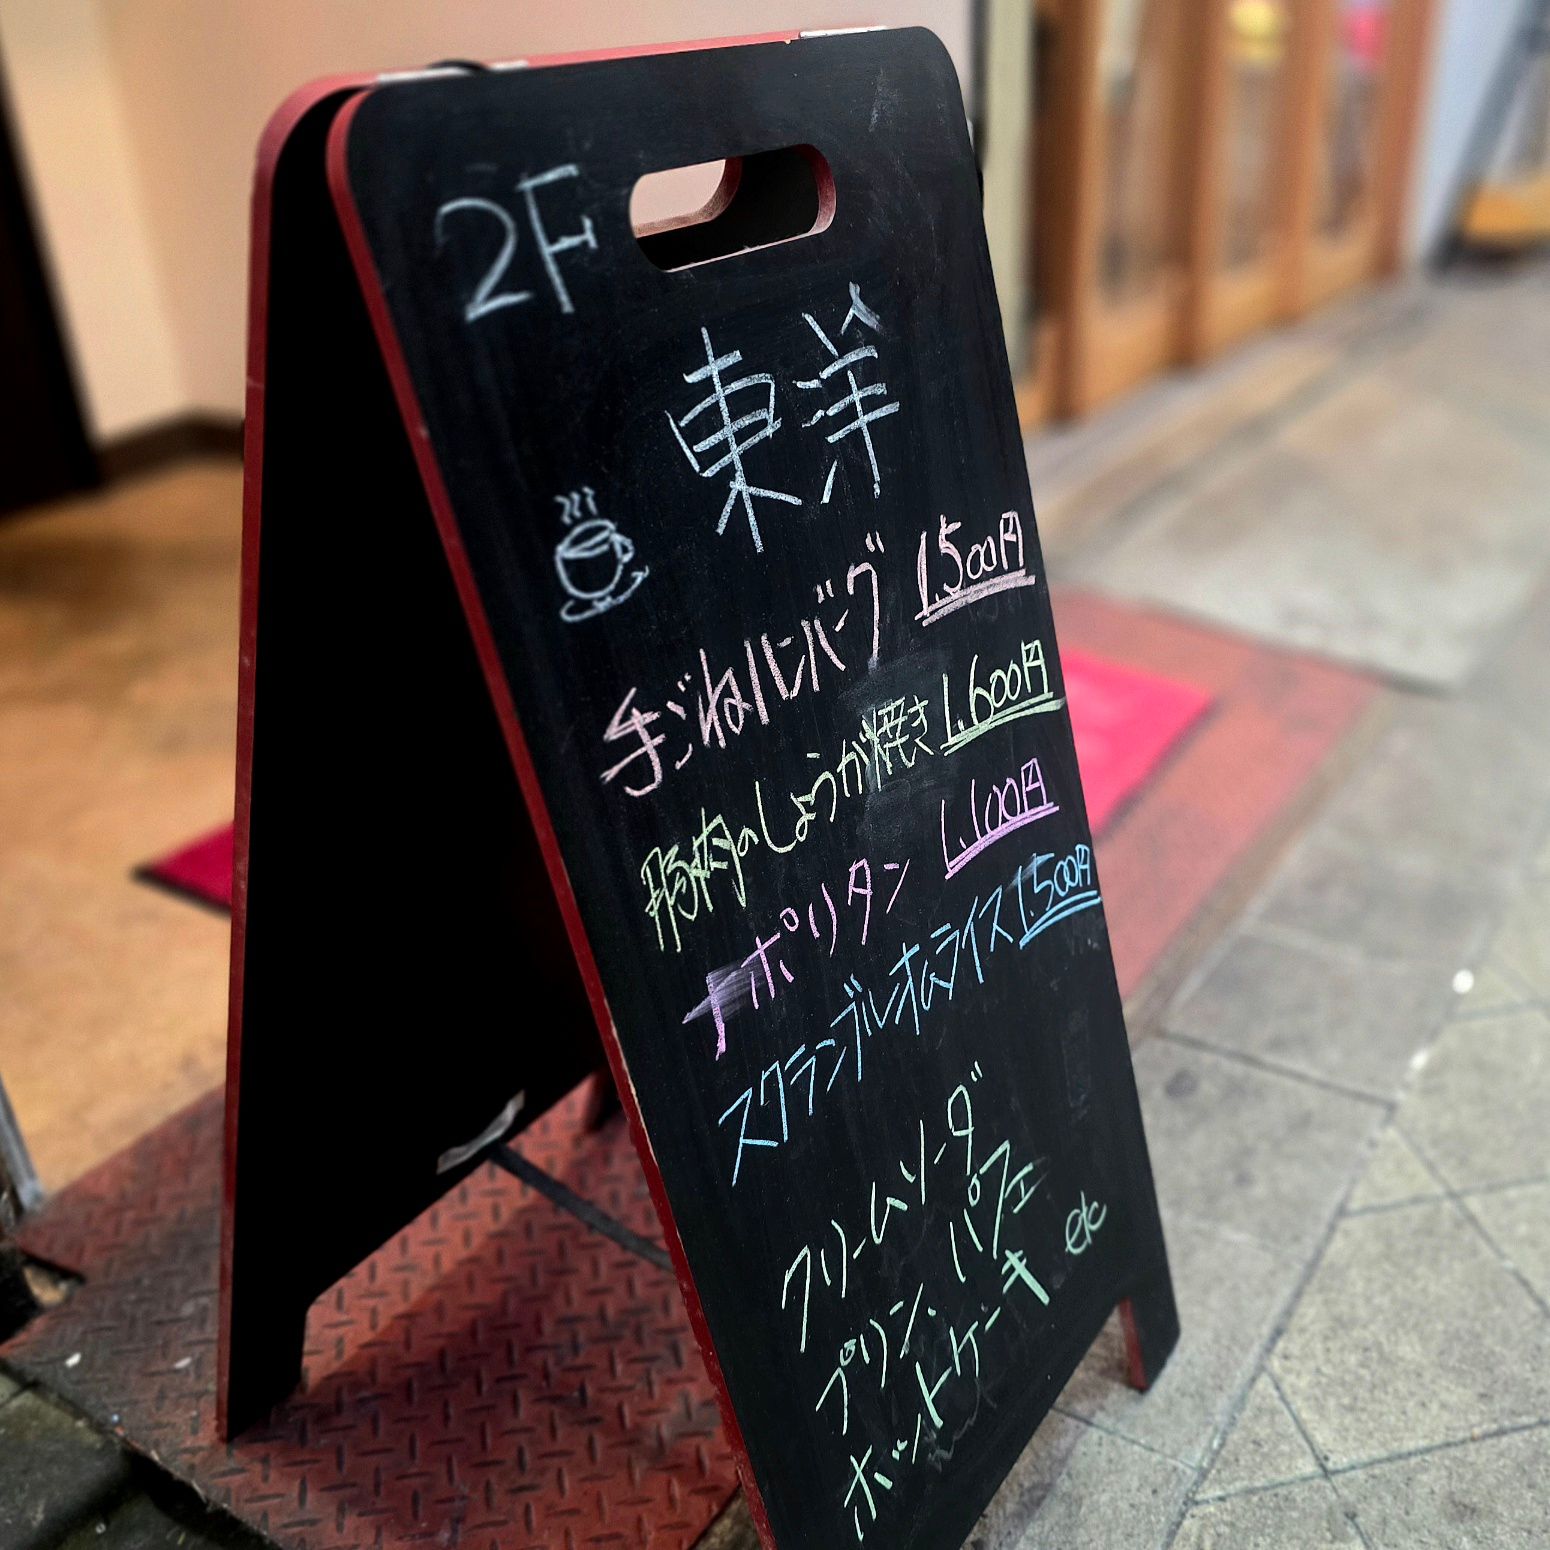 2F
東洋
手ごねハンバーグ 1.500円
豚肉のしょうが焼き 1.600円
ナポリタン 1.100円
スクランブルオムライス 1.500円
クリームソーダ
プリン、パフェ
ホットケーキ etc